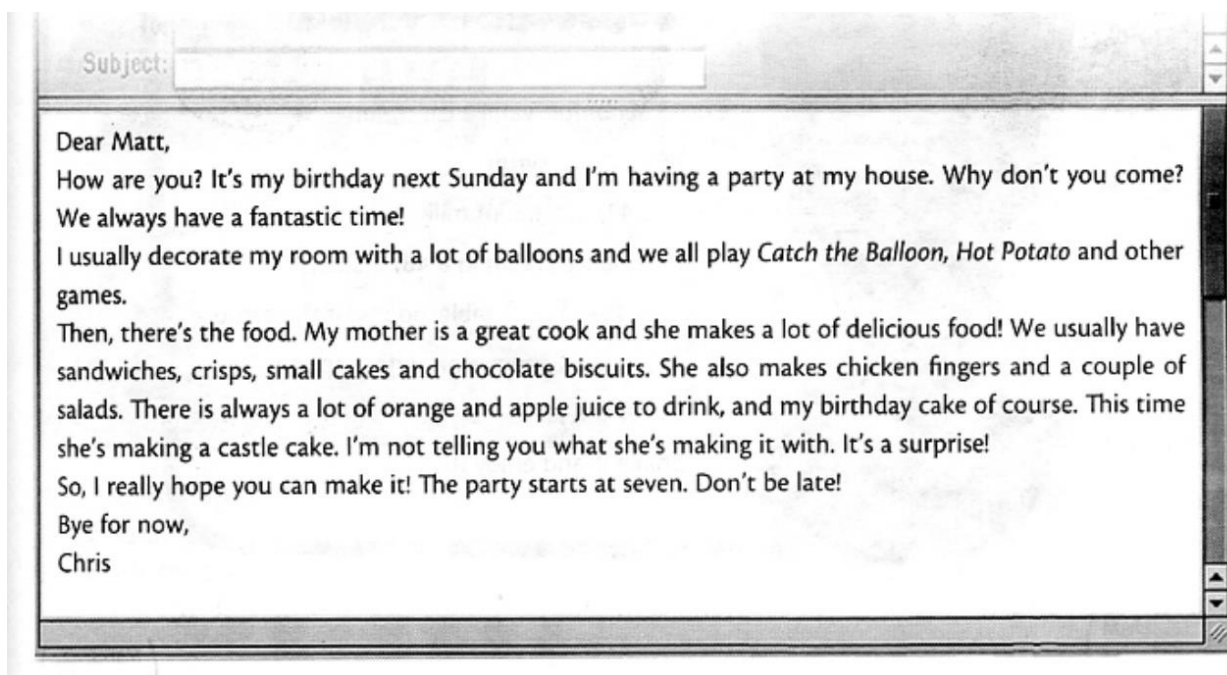 Subject:
Dear Matt,
How are you? It's my birthday next Sunday and I'm having a party at my house. Why don't you come?
We always have a fantastic time!
I usually decorate my room with a lot of balloons and we all play Catch the Balloon, Hot Potato and other
games.
Then, there's the food. My mother is a great cook and she makes a lot of delicious food! We usually have
sandwiches, crisps, small cakes and chocolate biscuits. She also makes chicken fingers and a couple of
salads. There is always a lot of orange and apple juice to drink, and my birthday cake of course. This time
she's making a castle cake. I'm not telling you what she's making it with. It's a surprise!
So, I really hope you can make it! The party starts at seven. Don't be late!
Bye for now,
Chris